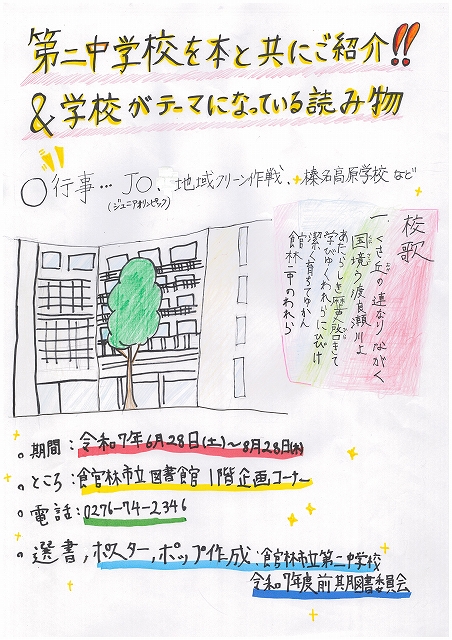 第二中学校を本と共にご紹介!!
&学校がテーマになっている読み物
○行事…JO、地域クリーン作戦、榛名高原学校など
(ジュニアオリンピック)
校歌
一、くさ丘の連なりながく
国境う渡良瀬川よ
あたらしき歴史啓きて
学びゆくわれらにひびけ
潔く育ちてゆかん
館林二中のわれら
。期間:令和7年6月28日(土)~8月28日(木)
。ところ:館林市立図書館1階企画コーナー
。電話:0276-74-2346
。選書,ポスター,ポップ作成:館林市立第二中学校
令和7年度前期図書委員会